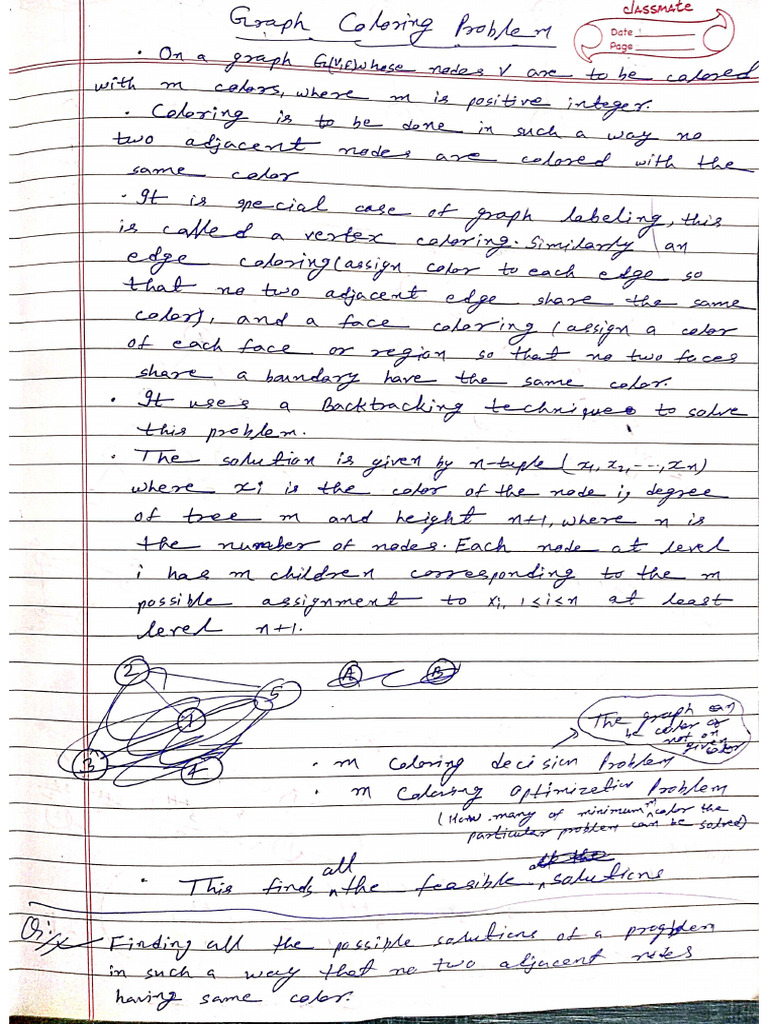 Graph Coloring Problem
CLASSMATE
Date :
Page
• On a graph G(V,E) whose nodes V are to be colored
with m colors, where m is positive integer.
• Coloring is to be done in such a way no
two adjacent nodes are colored with the
same color
• It is special case of graph labeling, this
is called a vertex coloring. Similarly an
edge coloring (assign color to each edge so
that no two adjacent edge share the same
color), and a face coloring (assign a color
of each face or region so that no two faces
share a boundary have the same color.
• It uses a Backtracking technique to solve
this problem.
• The solution is given by n-tuple (x1, x2, ---, xn)
where xi is the color of the node i, degree
of tree m and height n+1, where n is
the number of nodes. Each node at level
i has m children corresponding to the m
possible assignment to xi, 1≤i≤n at least
level n+1.
2
5
1
3
4
A
B
The graph can
be color or
not on
given
color
• m Coloring decision Problem
• m Coloring Optimization Problem
(How many of minimum m color the
particular problem can be solved)
• This finds all the feasible solutions
Finding all the possible solutions of a problem
in such a way that no two adjacent nodes
having same color.